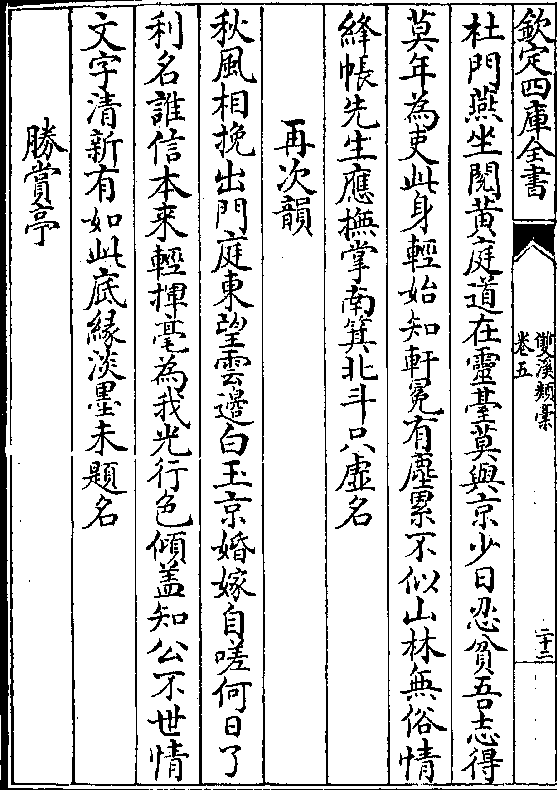 欽定四庫全書
雙溪類槀
卷五
二十二
杜門燕坐閱黄庭道在靈臺莫與京少日忍貧吾志得
莫年為吏此身輕始知軒冕有塵累不似山林無俗情
絳帳先生應撫掌南箕北斗只虛名
再次韻
秋風相挽出門庭東望雲邊白玉京婚嫁自嗟何日了
利名誰信本来輕揮毫為我光行色傾盖知公不世情
文字清新有如此底緣淡墨未題名
勝賞亭